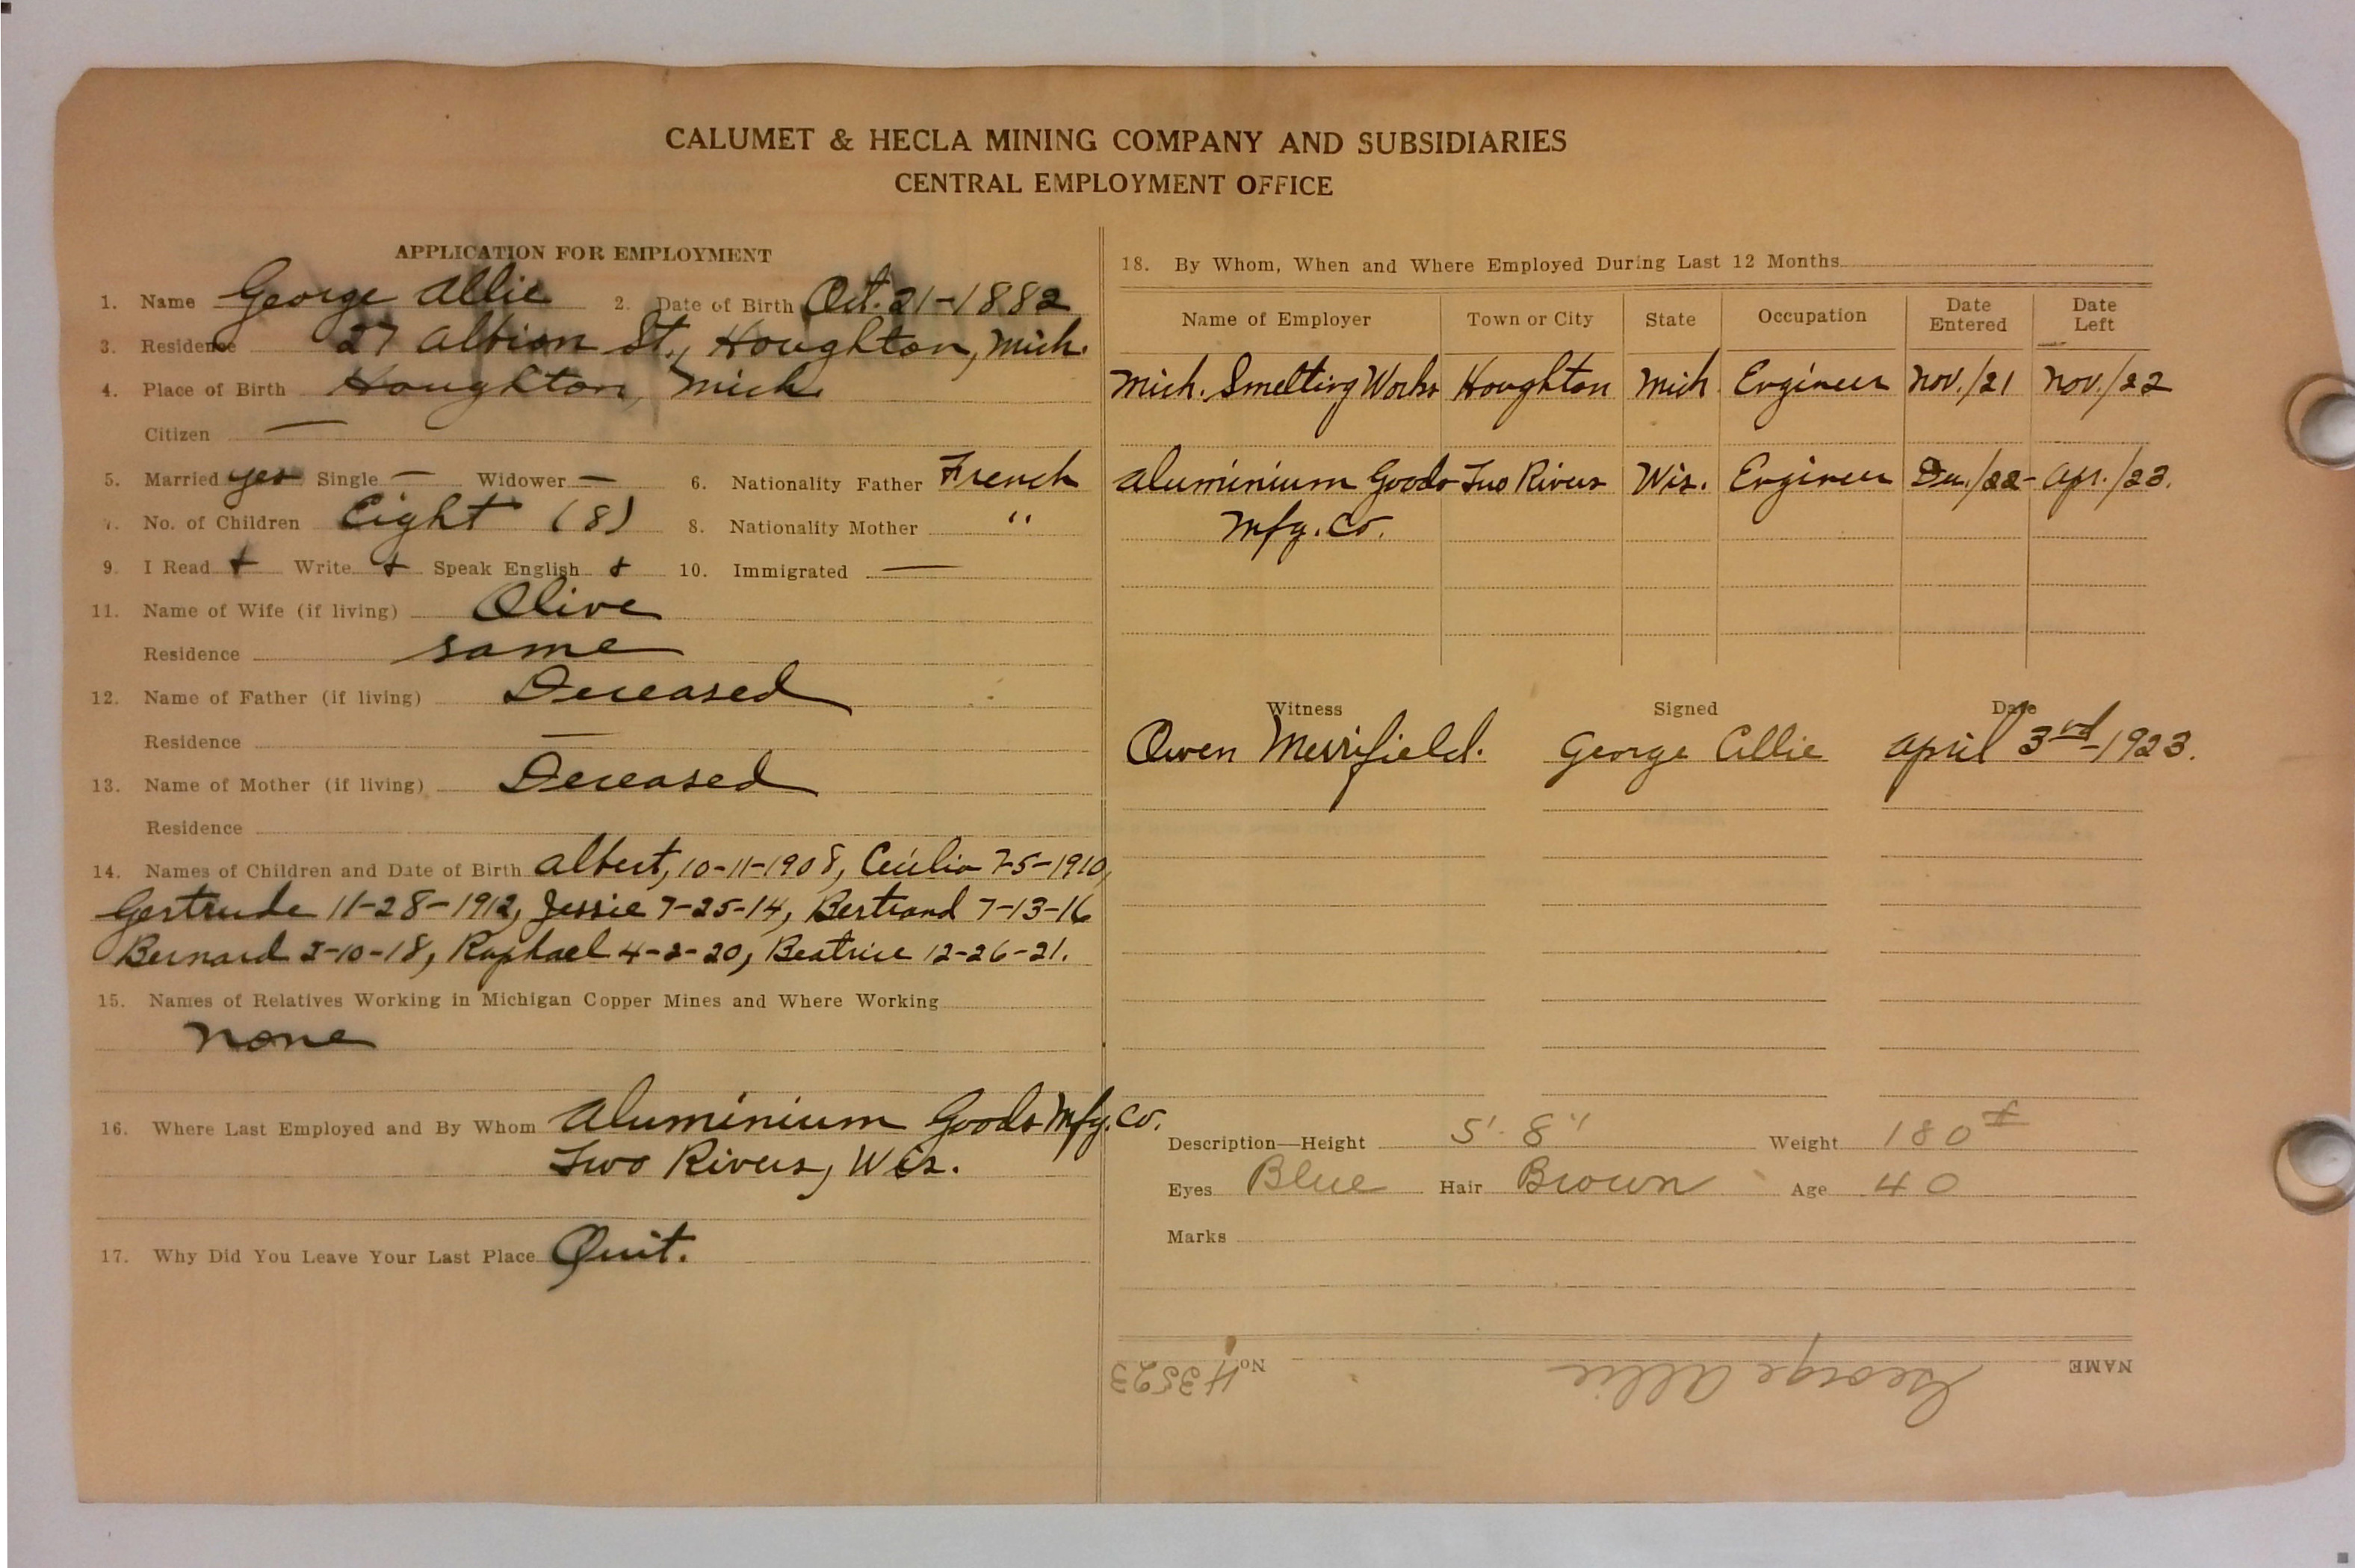 CALUMET & HECLA MINING COMPANY AND SUBSIDIARIES
CENTRAL EMPLOYMENT OFFICE
APPLICATION FOR EMPLOYMENT
1. Name George Allie 2. Date of Birth Oct. 21-1882
3. Residence 27 Albion St., Houghton, Mich.
4. Place of Birth Houghton, Mich.
Citizen —
5. Married yes Single — Widower — 6. Nationality Father French
7. No. of Children Eight (8) 8. Nationality Mother "
9. I Read + Write + Speak English + 10. Immigrated —
11. Name of Wife (if living) Olive
Residence same
12. Name of Father (if living) Deceased
Residence —
13. Name of Mother (if living) Deceased
Residence
14. Names of Children and Date of Birth Albert, 10-11-1908, Cecilia 7-5-1910,
Gertrude 11-28-1912, Jessie 7-25-14, Bertrand 7-13-16
Bernard 2-10-18, Raphael 4-2-20, Beatrice 12-26-21.
15. Names of Relatives Working in Michigan Copper Mines and Where Working
None
16. Where Last Employed and By Whom Aluminium Goods Mfg. Co.
Two Rivers, Wis.
17. Why Did You Leave Your Last Place Quit.
18. By Whom, When and Where Employed During Last 12 Months
Name of Employer Town or City State Occupation Date Entered Date Left
Mich. Smelting Works Houghton Mich Engineer Nov./21 Nov./22
Aluminium Goods Two Rivers Wis. Engineer Dec./22- Apr./23.
Mfg. Co.
Witness Signed Date
Owen Merrifield. George Allie April 3rd-1923.
Description—Height 5'. 8" Weight 180#
Eyes Blue Hair Brown Age 40
Marks
NAME George Allie No. H3523